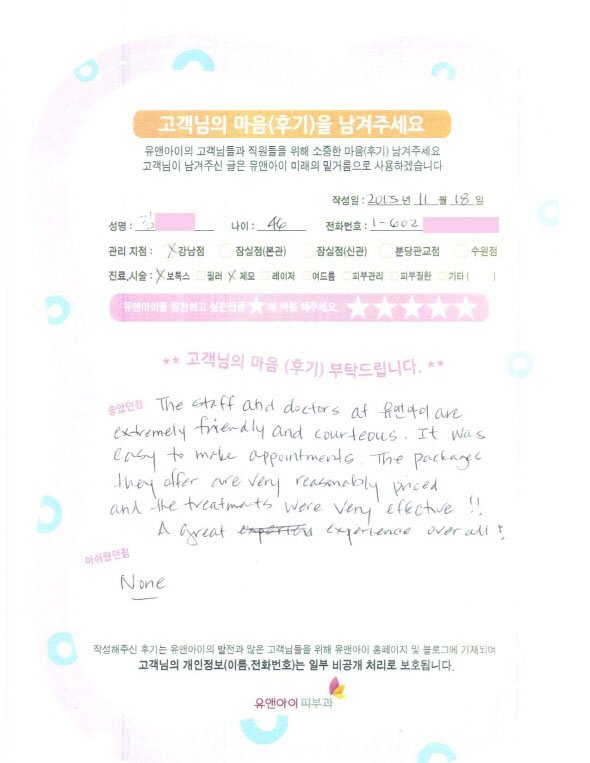 고객님의 마음(후기)을 남겨주세요
유앤아이의 고객님들과 직원들을 위해 소중한 마음(후기) 남겨주세요
고객님이 남겨주신 글은 유앤아이 미래의 밑거름으로 사용하겠습니다
작성일 : 2013 년 11 월 18 일
성명 : 김 나이 : 46 전화번호 : 1-602
관리 지점 : X 강남점 잠실점(본관) 잠실점(신관) 분당판교점 수원점
진료,시술 : X 보톡스 필러 X 제모 레이저 여드름 피부관리 피부질환 기타 ( )
유앤아이를 칭찬하고 싶은만큼 ★ 에 색칠 해주세요. ★★★★★
** 고객님의 마음 (후기) 부탁드립니다. **
좋았던점 The staff and doctors at 유앤아이 are
extremely friendly and courteous. It was
easy to make appointments. The packages
they offer are very reasonably priced
and the treatments were very effective !!
A great experience over all !
아쉬웠던점
None
작성해주신 후기는 유앤아이의 발전과 많은 고객님들을 위해 유앤아이 홈페이지 및 블로그에 기재되며
고객님의 개인정보(이름,전화번호)는 일부 비공개 처리로 보호됩니다.
유앤아이 피부과